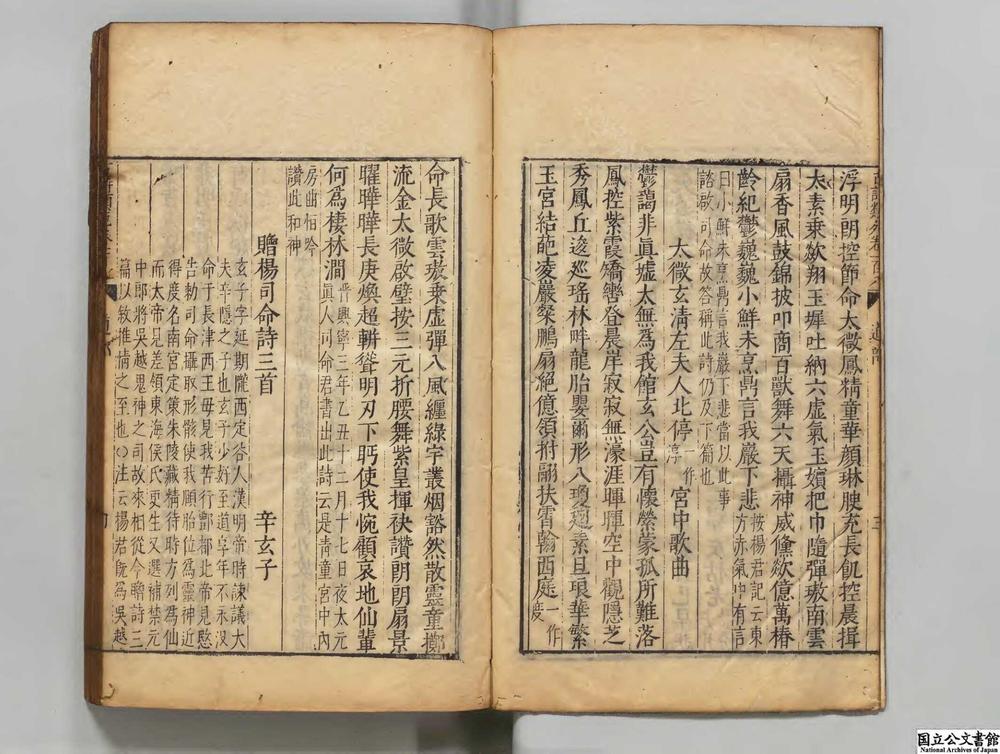 浮明朗控節命太微鳳精童華顏琳腴充長飢控晨揖
太素乗歘翔玉墀吐納六虛氣玉嬪把巾隨彈璈南雲
扇香風鼓錦披叩商百獸舞六天攝神威儵歘億萬椿
齡紀鬱巍巍小鮮未烹鼎言我巖下悲按楊君記云東
方赤氣中有言
曰小鮮未烹鼎言我巖下悲當以此事
諮啟司命故答稱此詩仍及下篇也
太微玄清左夫人北停一作
渟宮中歌曲
鬱藹非眞墟太無爲我館玄公豈有懷縈蒙孤所難落
鳳控紫霞矯轡登晨岸寂寂無濠涯暉暉空中觀隱芝
秀鳳丘逡巡瑤林畔龍胎嬰爾形八瓊廻素旦琅華繁
玉宮結葩凌巖粲鵬扇絕億領拊翮扶霄翰西庭一作
度
命長歌雲璈乗虛彈八風纏綠宇叢烟豁然散靈童擲
流金太微啟璧按三元折腰舞紫皇揮袂讚朗朗扇景
曜曄曄長庚煥超軿聳明刃下眄使我惋顧哀地仙輩
何爲棲林澗晋興寧三年乙丑十二月十七日夜太元
眞人司命君書出此詩云是靑童宮中內
房曲怕吟
讚此和神
贈楊司命詩三首 辛玄子
玄子字延期隴西定谷人漢明帝時諫議大
夫辛隱之子也玄子少好至道阜年不永沒
命于長津西王毋見我苦行酆都北帝見愍
告勅司命攝取形骸使我頤胎位爲靈神近
得度名南宮定策朱陵藏精待時方列爲仙
而太帝見差領東海侯氏更生又選補禁元
中郎將吳越鬼神之司故來相從令贈詩三
篇以敘推情之至也○注云楊君旣爲吳越
国立公文書館
National Archives of Japan